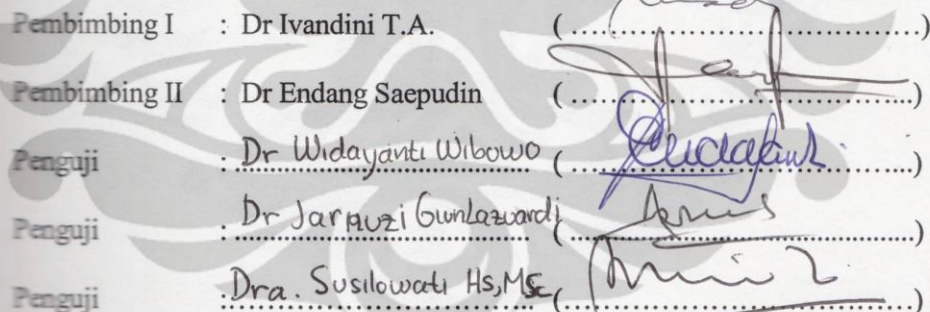 Pembimbing I : Dr Ivandini T.A. (........................................)
Pembimbing II : Dr Endang Saepudin (........................................)
Penguji : Dr Widayanti Wibowo (........................................)
Penguji : Dr Jarnuzi Gunlazuardi (........................................)
Penguji : Dra. Susilowati Hs, MSc (........................................)